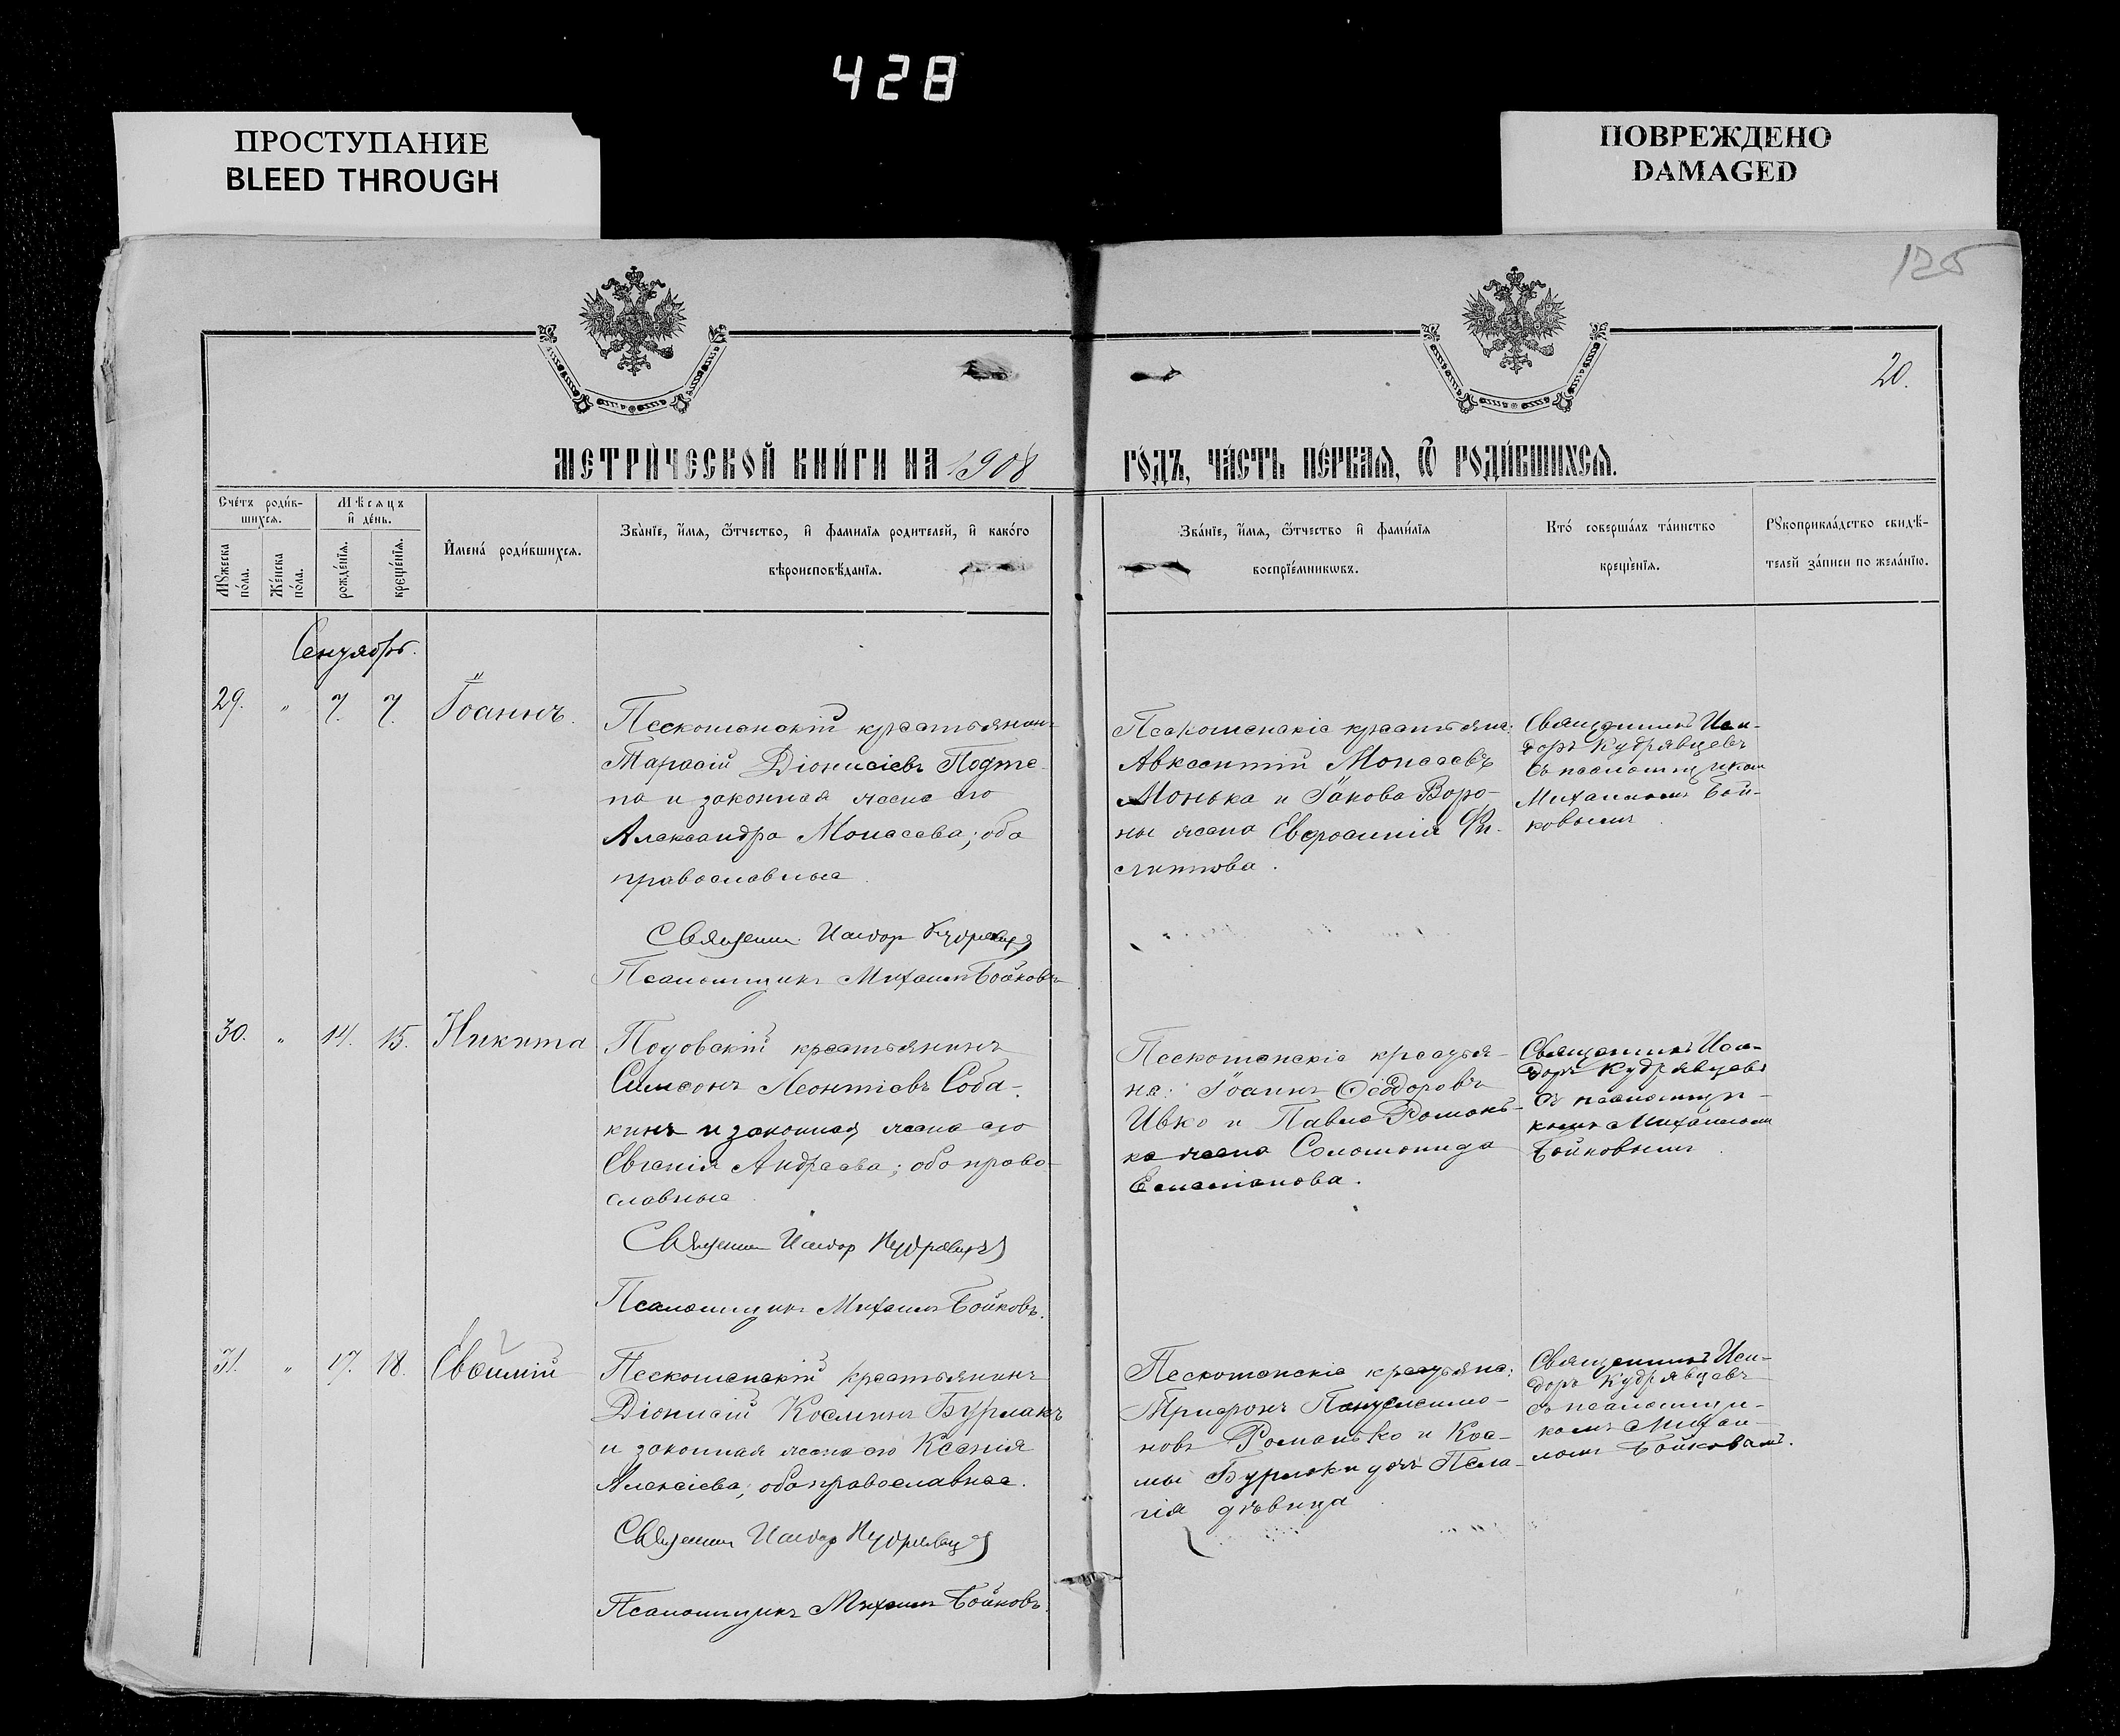 428
ПРОСТУПАНИЕ
BLEED THROUGH
ПОВРЕЖДЕНО
DAMAGED
125
20.
МЕТРИ́ЧЕСКОЙ КНИ́ГИ НА 1908
ГО́ДЪ, ЧА́СТЬ ПЕ́РВАЯ, Ѿ РОДИ́ВШИХСЯ.
Сче́тъ роди́в-
шихся.
Мѣ́сяцъ
и҆ де́нь.
Мꙋ́жеска
по́ла.
Же́нска
по́ла.
рожде́нїѧ.
креще́нїѧ.
И҆мена́ роди́вшихся.
Зва́нїе, и҆́мѧ, ѻ҆́тчество, и҆ фами́лїѧ родителей, и҆ како́гѡ
вѣроисповѣ́данїѧ.
Зва́нїе, и҆́мѧ, ѻ҆́тчество и҆ фами́лїѧ
воспрїе́мникѡвъ.
Кто̀ соверша́лъ та́инство
креще́нїѧ.
Рꙋкоприкла́дство свидѣ́-
телей за́писи по жела́нїю.
Сентябрь.
29. " 7. 7. Іоаннъ.
Пескошанскій крестьянинъ
Тарасій Діонисіевъ Подте-
па и законная жена его
Александра Моисеева; оба
православные.
Священн. Исидор Кудрявцев
Псаломщикъ Михаилъ Бойковъ
Авксентій Моисеевъ
Монька и Іакова Воро-
ны жена Евфросинія Фи-
липпова.
Священникъ Иси-
доръ Кудрявцевъ
съ псаломщикомъ
Михаиломъ Бой-
ковымъ.
30. " 14. 15. Никита
крестьянинъ
Симеонъ Леонтіевъ Соба-
кинъ и законная жена его
Евгенія Андреева; оба право-
славные.
Священн Исидор Кудрявцев
Псаломщикъ Михаилъ Бойковъ.
крестья-
не: Іоаннъ Ѳеодоровъ
Ивко и Павла Романь-
ка жена Соломонида
Священникъ Иси-
доръ Кудрявцевъ
съ псаломщи-
комъ Михаиломъ
Бойковымъ.
31. " 17. 18. Евѳимій
крестьянинъ
Діонисій Косминъ Бурлакъ
и законная жена его Ксенія
Алексіева; оба православные.
Священн Исидор Кудрявцев
Псаломщикъ Михаилъ Бойковъ.
крестьяне:
Трифонъ
новъ Романько и Кос-
мы Бурлаки дочь Пела-
гія дѣвица.
Священникъ Иси-
доръ Кудрявцевъ
съ псаломщи-
комъ Михаи-
ломъ Бойковымъ.